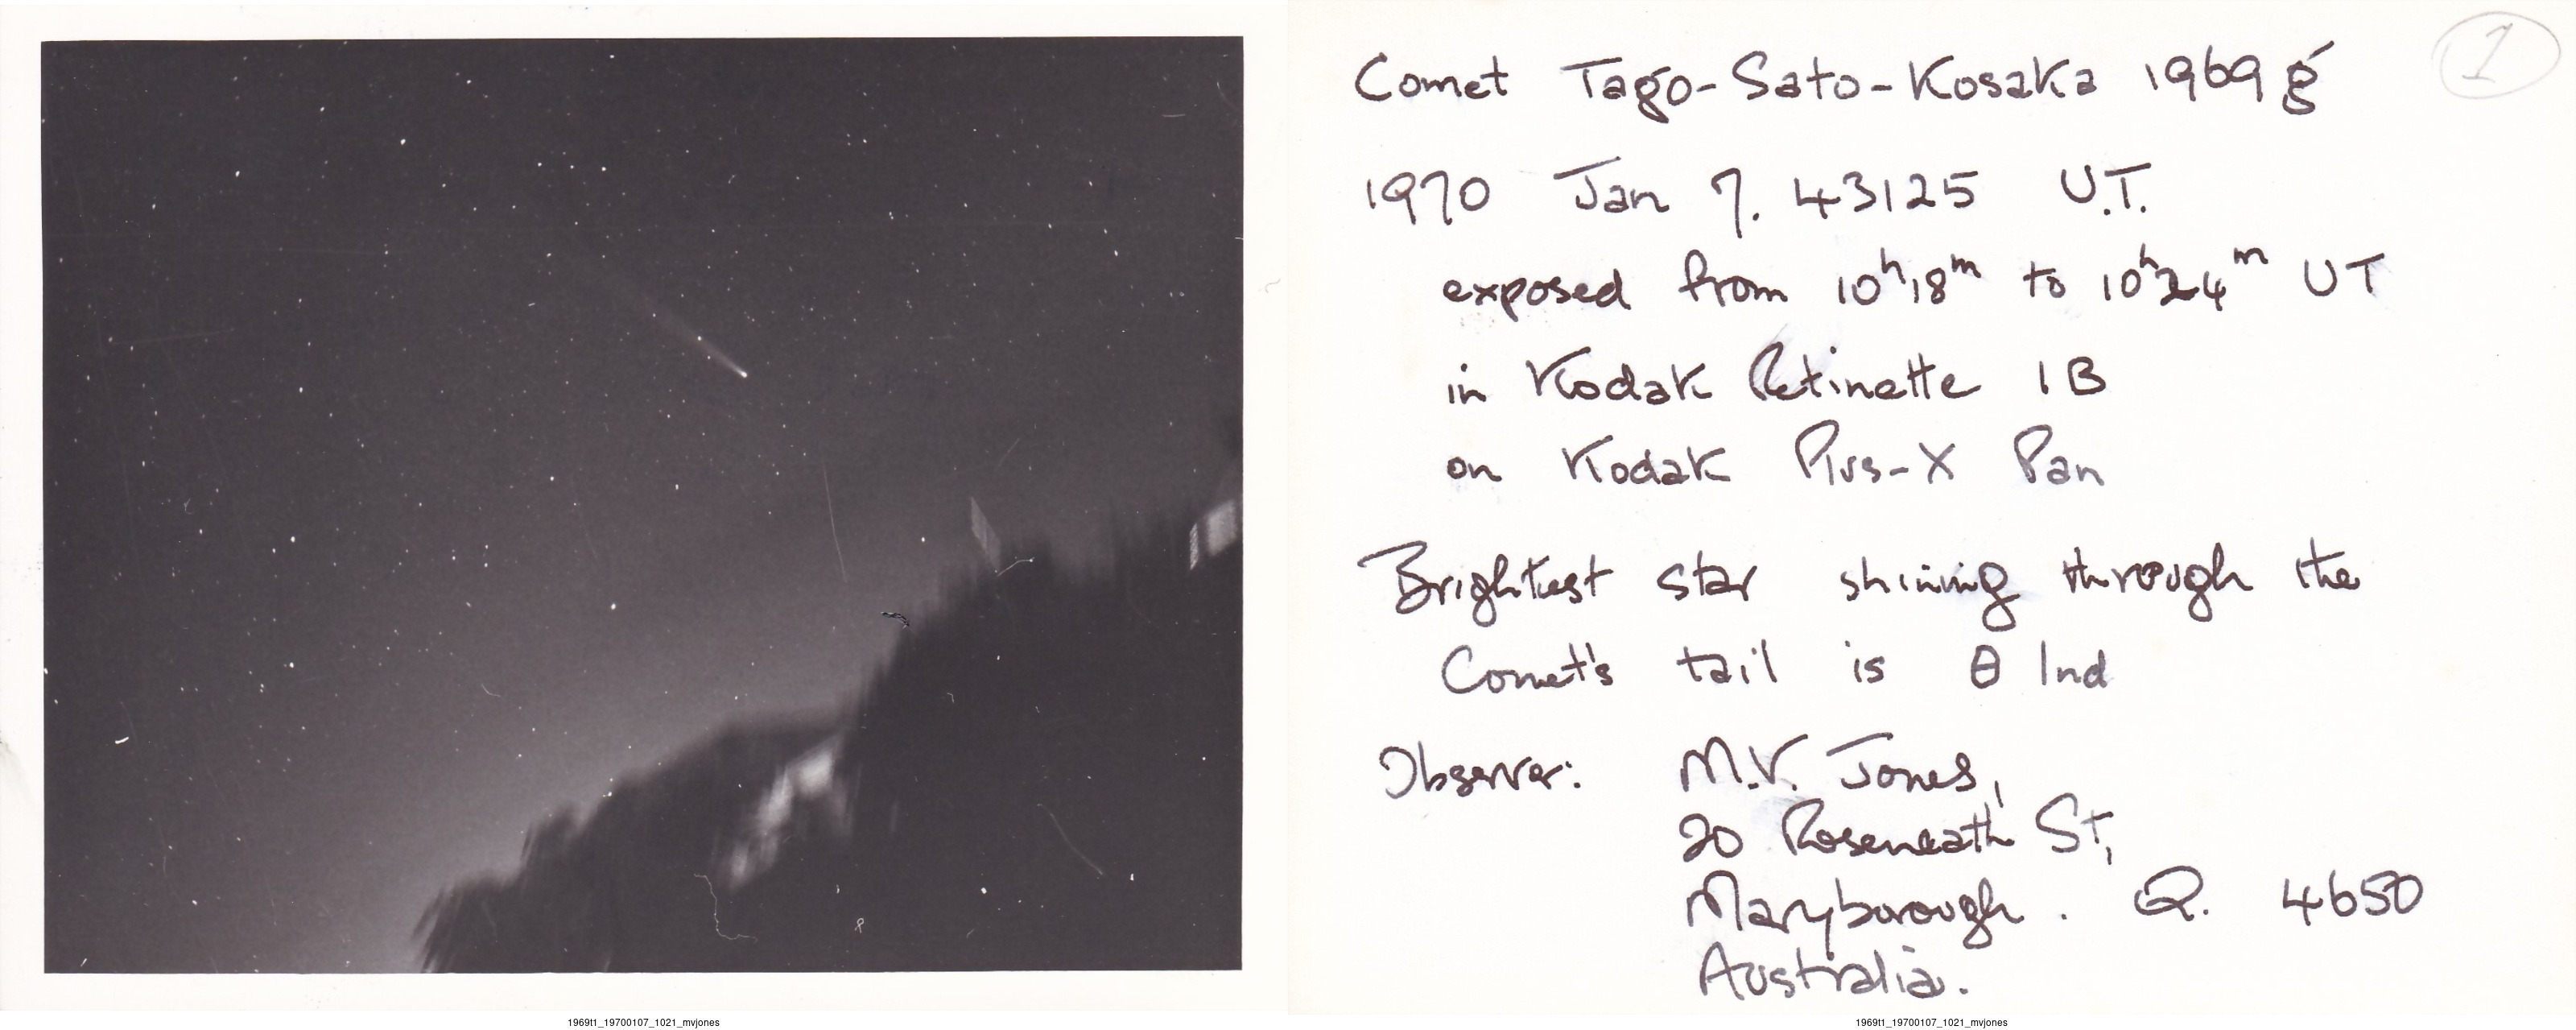 1
Comet Tago-Sato-Kosaka 1969g
1970 Jan 7.43125 U.T.
exposed from 10h18m to 10h24m UT
in Kodak Retinette 1B
on Kodak Plus-X Pan
Brightest star shining through the
Comet's tail is θ Ind
Observer: M.V. Jones,
20 Roseneath St,
Maryborough. Q. 4650
Australia.
1969t1_19700107_1021_mvjones
1969t1_19700107_1021_mvjones